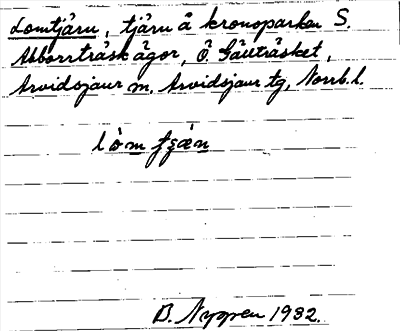 Lomtjärn, tjärn å kronoparken S.
Abborrträsk ägor, Ö. Gäuträsket,
Arvidsjaur sn, Arvidsjaur tg, Norrb. l.
B. Nygren 1932.